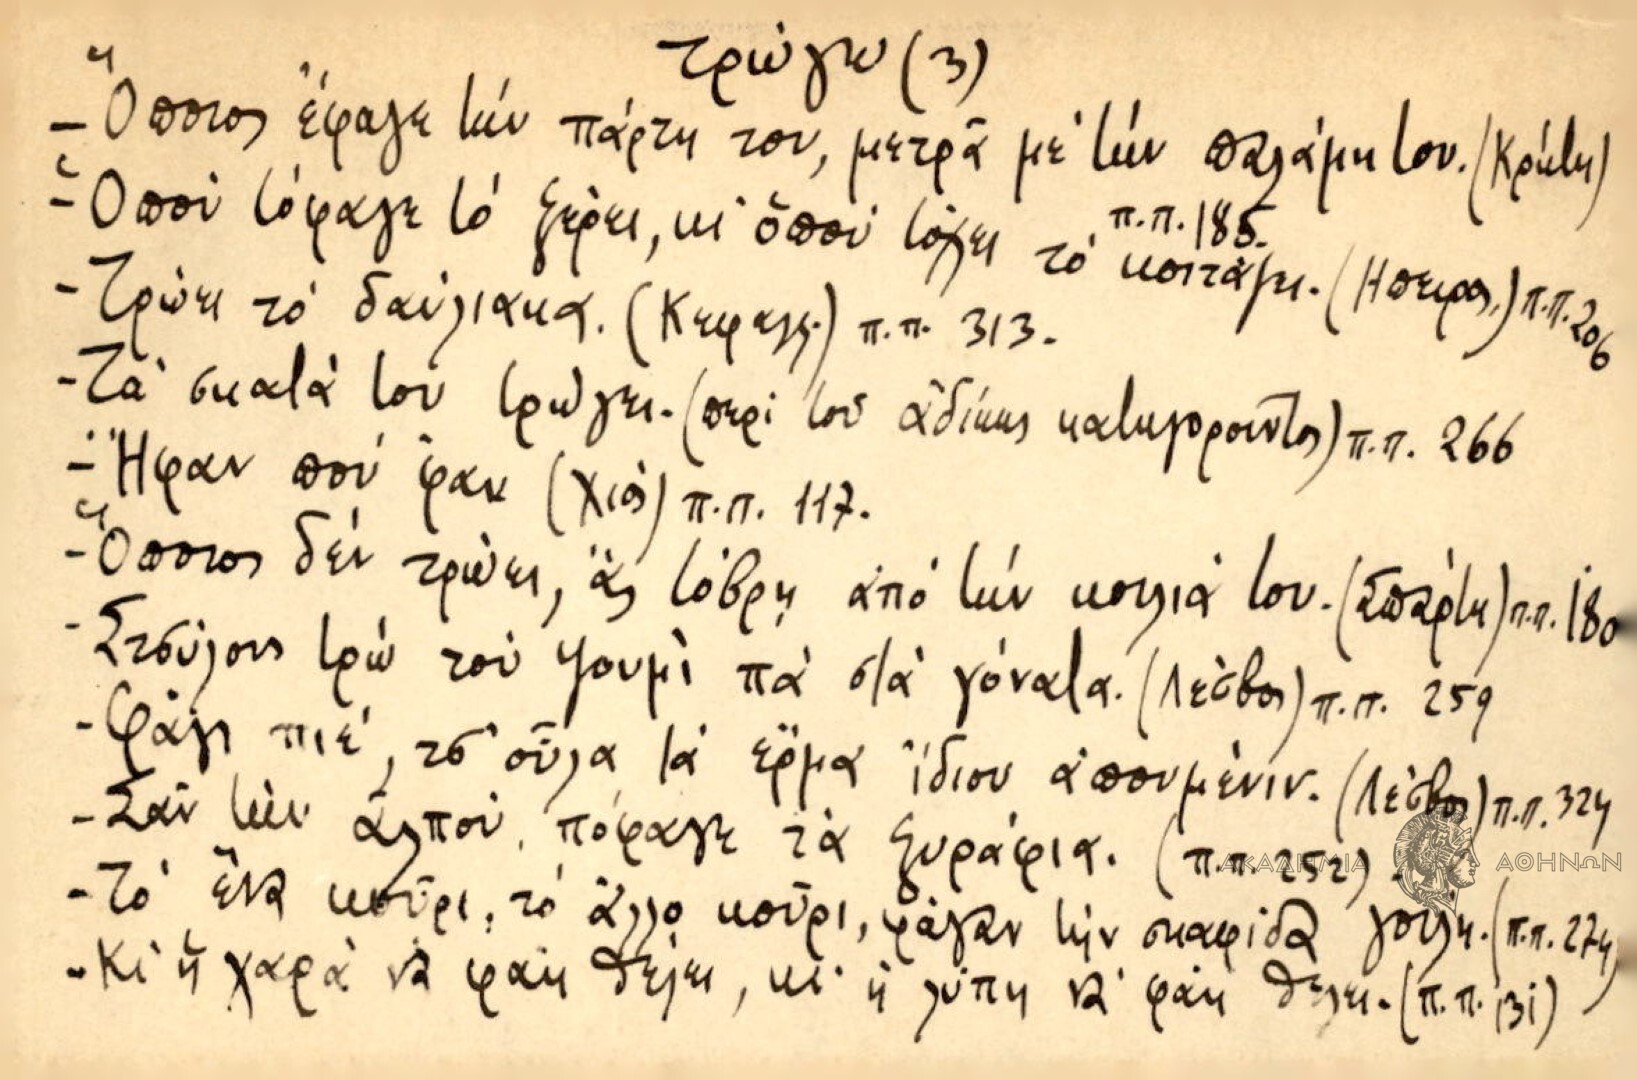 τρώγω (3)
- Ὅποιος ἔφαγε τήν πάρτη του, μετρᾶ μέ τήν παλάμη του. (Κρήτη)
π.π. 185.
- Ὁποὺ τόφαγε τό ξέρει, κι ὁποὺ τόχει τό κοιτάζει. (Ήπειρος) π.π. 206
- Τρώει τό δαύλιακα. (Κεφαλλ.) π.π. 313.
- Τά σκατά του τρώγει. (περί τοῦ ἀδίκως κατηγοροῦντος) π.π. 266
- Ἤφαν πού φαν (Χίος) π.π. 117.
- Ὅποιος δέν τρώει, ἄς τόβρῃ ἀπό τήν κοιλιά του. (Σπάρτη) π.π. 180
- Στσύλους τρώ τού ψουμί πά στά γόνατα. (Λέσβος) π.π. 259
- Φάγι πιέ, τσ' οὗλα τά ἔρμα ἴδιου ἀπουμένιν. (Λέσβος) π.π. 324
- Σάν τήν ἀλπού, πόφαγε τά ξυράφια. (π.π. 252)
- Τό ἕνα κοῦρι, τό ἄλλο κοῦρι, φάγαν τήν σκαφίδα γουλή. (π.π. 274)
- Κί ἡ χαρά νά φάη θέλει, κι ἡ λύπη νά φάη θέλει. (π.π. 131)
ΑΚΑΔΗΜΙΑ ΑΘΗΝΩΝ